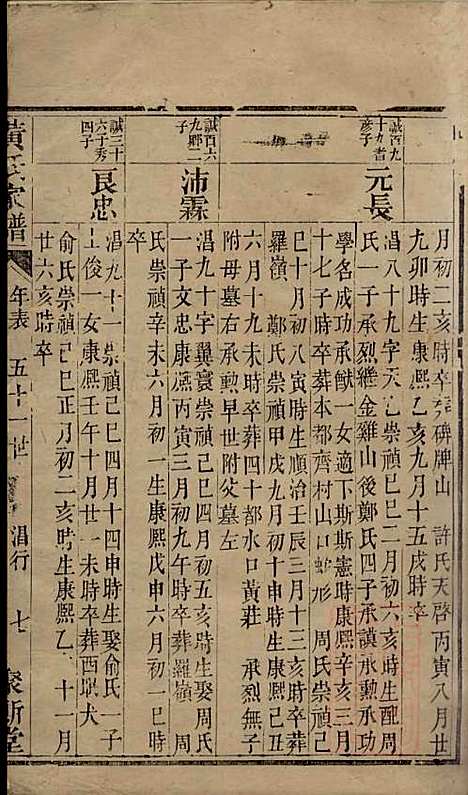 月初二亥時卒葬碑牌山 許氏天啓丙寅八月廿
九卯時生康熙乙亥九月十五戌時卒
誠百九
十九耆
彥子
元長
淐八十九字天 崇禎己巳二月初六亥時生配周
氏一子承烈繼金雞山後鄭氏四子承謨承勳承功
學名成功承猷一女適下斯斯憲時康熙辛亥三月
十七子時卒葬本都齊村山口蛇形 周氏崇禎己
巳十月初八寅時生順治壬辰三月十三亥時卒葬
羅嶺 鄭氏崇禎甲戌九月初十申時生康熙己丑
六月十九未時卒葬四十都水口黃莊 承烈無子
附母墓右承勳早世附父墓左
誠百六
九郷二
子
沛霖
淐九十字翼寰崇禎己巳四月初五亥時生娶周氏
一子文忠康熙丙寅三月初九午時卒葬羅嶺 周
氏崇禎辛未六月初一生康熙戊申六月初一巳時
卒
誠三十
六于秀
四子
良忠
淐九十一崇禎己巳四月十四申時生娶俞氏一子
上俊一女康熙壬午十月廿一未時卒葬西㙮犬
俞氏崇禎己巳正月初二亥時生康熙乙 十一月
廿六亥時卒
黃氏家譜
年表 五十一世
淐行
七
聚斯堂